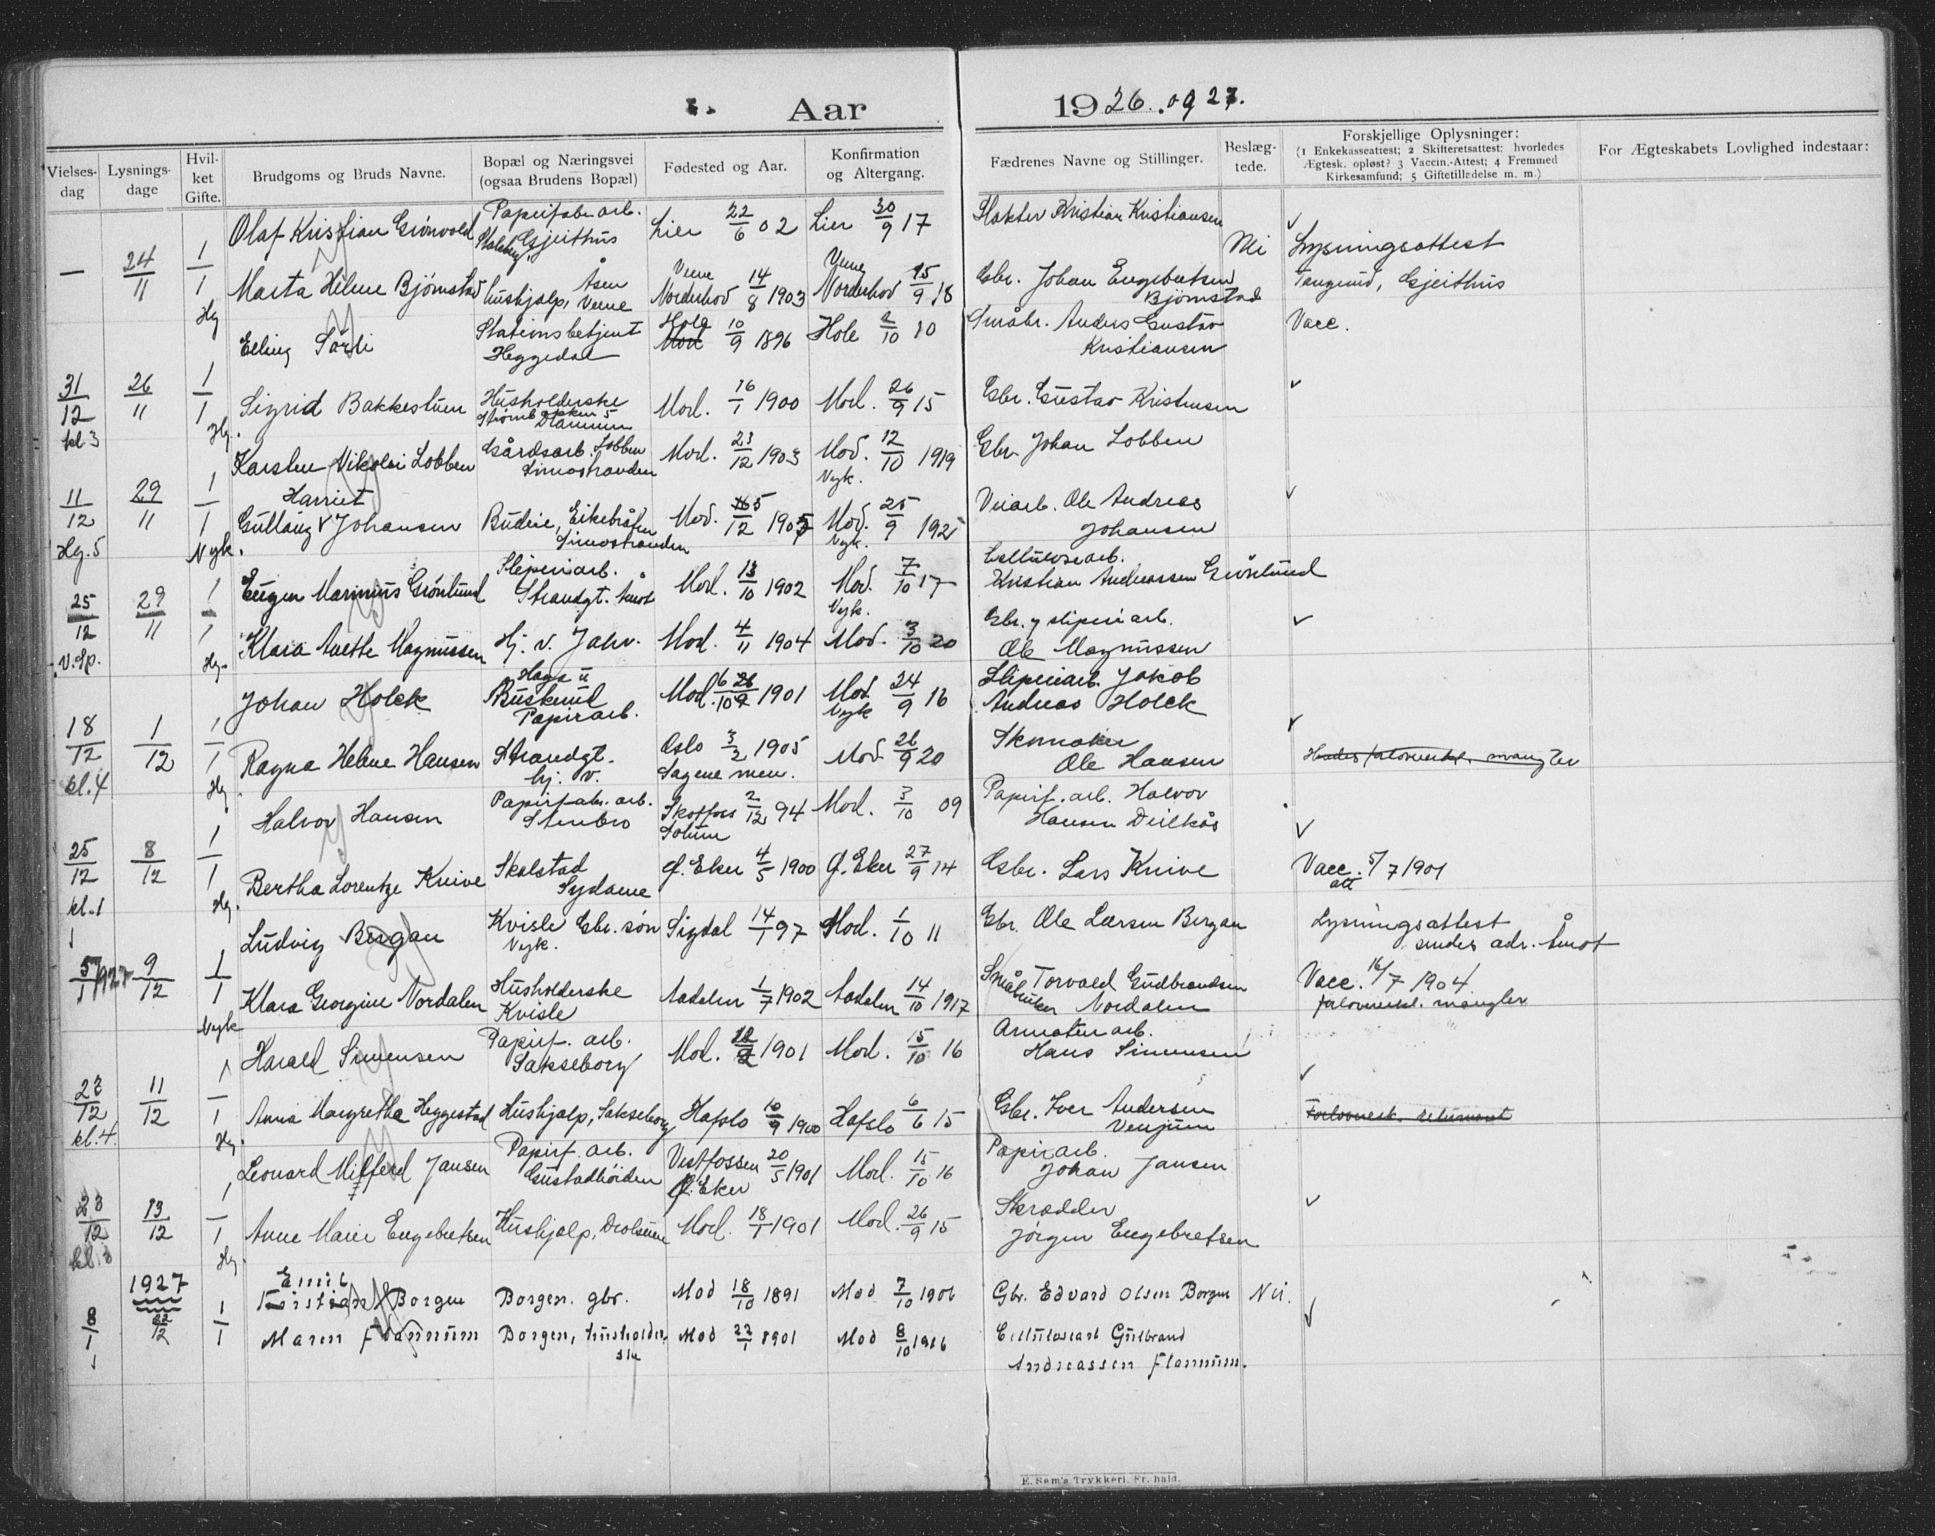 Aar 1926 og 27.
Vielses-dag
Lysnings-dage
Hvil-ket Gifte.
Brudgoms og Bruds Navne.
Bopæl og Næringsvei (ogsaa Brudens Bopæl)
Fødested og Aar.
Konfirmation og Altergang.
Fædrenes Navne og Stillinger.
Beslæg-tede.
Forskjellige Oplysninger:
(1 Enkekasseattest; 2 Skifteretsattest; hvorledes Ægtesk. opløst? 3 Vaccin.-Attest; 4 Fremmed Kirkesamfund; 5 Giftetilladelse m. m.)
For Ægteskabets Lovlighed indestaar:
Olaf Kristian Grönvold Papirfabr. arb. Gjeithus Lier 22/6 02 Lier 30/9 17 Slakter Kristian Kristiansen
— 24/11 1/1 Marta Helene Bjørnstad Åsen hushjelp, Veme Veme Norderhov 14/8 1903 Veme Norderhov 15/9 18 Gbr. Johan Engebretsen Bjørnstad Nei Lysningsattest Gjeithus
Hg
Elling Sörli Stationsbetjent Heggedal Hole 10/9 1896 Hole 2/10 10 Småbr. Anders Gustav Kristiansen Vacc.
31/12 kl 3 26/11 1/1 Hg. Sigrid Bakkestuen Husholderske Strømbakken 5 Drammen Mod. 16/1 1900 Mod. 26/9 15 Gbr. Gustav Kristensen
Karsten Nikolai Lobben Gårdsarb. Lobben Simostranden Mod. 23/12 1903 Mod. 12/10 1919 Nyk. Gbr. Johan Lobben
11/12 Hg. 5 29/11 1/1 Nyk. Harriet Gullaug Johansen Budeie, Simostranden Mod. 12 190 Mod. 25/9 192 Nyk. Veiarb. Ole Andreas Johansen
Eugen Marinius Grönlund Sliperiarb. Strandgt. Åmot Mod. 13/10 1902 Mod. 7/10 17 Nyk. Cellulosearb. Kristian Andreassen Grönlund
25/12 v. Sp. 29/11 1/1 Hg. Klara Anette Magnussen Hj. v. Jahr. Mod. 4/11 1904 Mod. 3/10 20 Gbr. og sliperiarb. Ole Magnussen
Johan Holck Buskerud Papirarb. Mod. 1901 Mod. Nyk 24/9 16 Sliperiarb. Jakob Andreas Holck
18/12 kl. 4 1/12 1/1 Hg. Ragna Helene Hansen Strandgt. hj. v. Oslo 3/2 1905 Sagene men. Mod 26/9 20 Skomaker Ole Hansen Hendes forloverekl. mangler
Halvor Hansen Papirfabr. arb. Stenbro Skotfoss Solum 2/12 94 Mod. 3/10 09 Papirf. arb. Halvor Hansen
25/12 kl. 1 8/12 1/1 Hg. Bertha Lorentze Knive Skalstad Ø. Eker 4/5 1900 Ø. Eker 27/9 14 Gbr. Lars Knive Vacc. att 5/7 1901
Ludvig Bergan Kvisle Gbr. søn Nyk. Sigdal 14/1 97 Mod. 1/10 11 Gbr. Ole Larsen Bergan Lysningsattest sendes adr. Åmot
5/1 1927 9/12 1/1 Nyk Klara Georgine Nordalen Husholderske Kvisle Aadalen 1/7 1902 Aadalen 14/10 1917 Småbruker Torvald Gudbrandsen Nordalen Vacc. 16/7 1904. forloverekl. mangler
Harald Simensen Papirf. arb. Sakseborg Mod. 1901 Mod. 15/10 16 Armaturarb. Hans Simensen
23/12 kl. 4. 11/12 1/1 Hg. Anna Margretha Heggestad Hushjælp, Sakseborg Hafslo 10/9 1900 Hafslo 6/6 15 Gbr. Iver Andersen Venjum
Leonard Milford Jansen Papirf. arb. Gustadhöiden Vestfossen Ø. Eker 20/5 1901 Mod. 15/10 16 Papirarb. Johan Jansen
23/12 kl. 3 13/12 1/1 Hg. Anne Marie Engebretsen Hushjælp, Mod. 18/1 1901 Mod. 26/9 15 Skrædder Jörgen Engebretsen
1927
Emil Kristian Borgen Borgen. gbr. Mod 18/10 1891 Mod 7/10 1906 Gbr. Edvard Olsen Borgen Nei.
8/1 22/12 1/1 Maren Flannum Borgen, husholderske Mod 22/1 1901 Mod 8/10 1916 Cellulosearb Gulbrand Andreassen Flannum.
E. Sem's Trykkeri, Fr.hald.